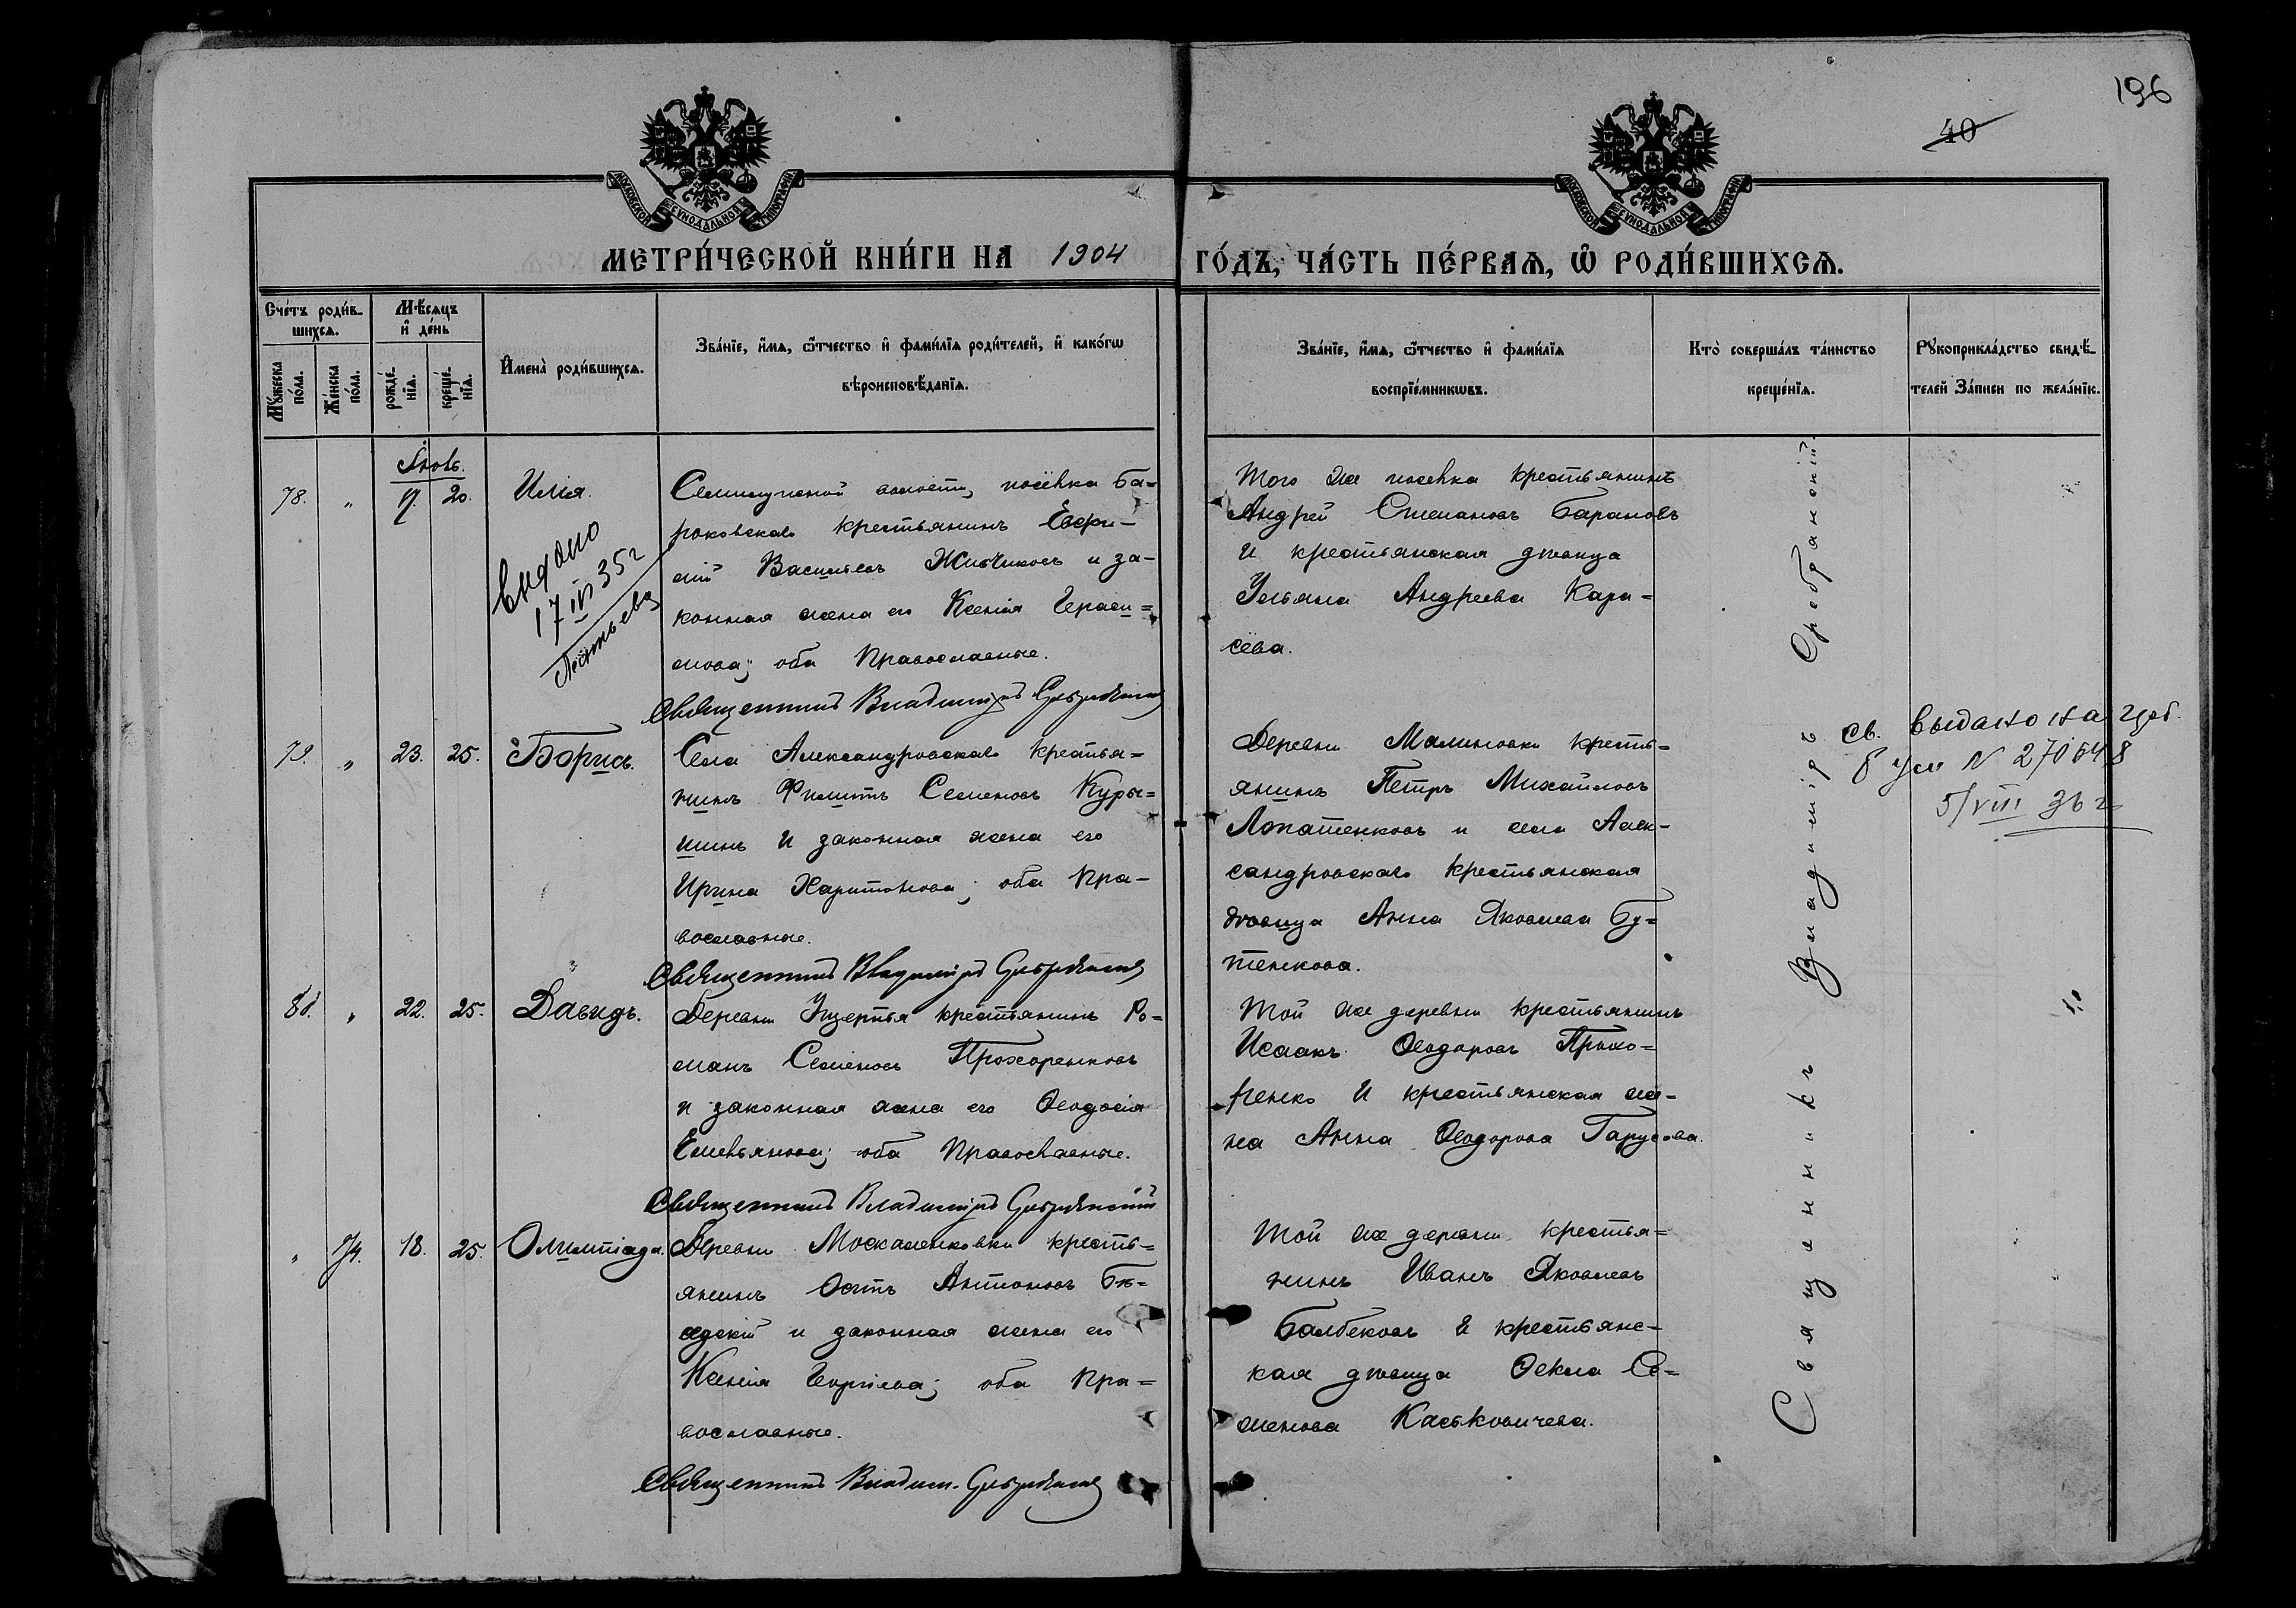 196
40
МОСКОВСКОЙ СѴНОДАЛЬНОЙ ТИПОГРАФІИ
МОСКОВСКОЙ СѴНОДАЛЬНОЙ ТИПОГРАФІИ
МЕТРИ́ЧЕСКОЙ КНИ́ГИ НА 1904
ГО́ДЪ, ЧА́СТЬ ПЕ́РВАѦ, Ѡ҆ РОДИ́ВШИХСѦ.
Сче́тъ роди́в-
шихсѧ.
Мꙋ́жеска по́ла.
Же́нска по́ла.
Мѣ́сѧцъ
и҆ де́нь
рожде́-
нїѧ.
креще́-
нїѧ.
И҆мена̀ роди́вшихсѧ.
Зва́нїе, и҆́мѧ, ѻ҆́тчество и҆ фами́лїѧ роди́телей, и҆ како́гѡ
вѣроисповѣ́данїѧ.
Зва́нїе, и҆́мѧ, ѻ҆́тчество и҆ фами́лїѧ
воспрїе́мникѡвъ.
Кто̀ соверша́лъ та́инство
креще́нїѧ.
Рꙋкоприкла́дство свидѣ́-
телей За́писи по жела́нїю.
78. " 20. Илія.
выдано
17 IV 35 г
волости, посёвка Ба-
роковскаго крестьянинъ
Васильевъ и за-
конная жена его Ксенія Гераси-
мова; оба Православные.
Священникъ Владиміръ
Того же посевка крестьянинъ
Андрей Степановъ Барановъ
и крестьянская дѣвица
Ульяна Андреева Кара-
сёва.
79. " 23. 25. Борисъ.
Села Александровскаго крестья-
нинъ Филиппъ Семеновъ Куры-
шинъ и законная жена его
Ирина Харитонова; оба Пра-
вославные.
Священникъ Владиміръ
Деревни Малиновки кресть-
янинъ Петръ Михайловъ
Лопатенковъ и села Алек-
сандровскаго крестьянская
дѣвица Анна Яковлева Бу-
тенкова.
св. выдано на
N 270648
5/VIII 36 г
80. " 22. 25. Давидъ.
Деревни крестьянинъ Ро-
манъ Семеновъ Прохоренковъ
и законная жена его Ѳеодосія
Емельянова; оба Православные.
Священникъ Владиміръ
Той же деревни крестьянинъ
Исаакъ Ѳеодоровъ Прохо-
ренко и крестьянская же-
на Анна Ѳеодорова Гарусова.
" 74. 18. 25. Олимпіада.
Деревни Москаленковки кресть-
янинъ Антоновъ Бѣ-
и законная жена его
Ксенія Георгіева; оба Пра-
вославные.
Священникъ Владим.
Той же деревни крестья-
нинъ Иванъ Яковлевъ
Балбековъ и крестьянс-
кая дѣвица Ѳекла Се-
менова
Священникъ Владиміръ